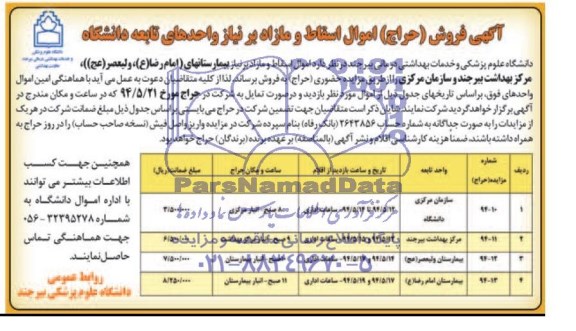 آگهی فروش (حراج) اموال اسقاط و مازاد بر نیاز واحدهای تابعه دانشگاه
دانشگاه علوم پزشکی و خدمات بهداشتی درمانی بیرجند در نظر دارد اموال اسقاط و مازاد بر نیاز بیمارستانهای (امام رضا(ع)، ولیعصر(عج))،
مرکز بهداشت بیرجند و سازمان مرکزی را از طریق مزایده حضوری (حراج) به فروش برساند. لذا از کلیه متقاضیان دعوت به عمل می آید با هماهنگی امین اموال
واحدهای فوق، بر اساس تاریخهای جدول ذیل از اموال مورد نظر بازدید و درصورت تمایل به شرکت در حراج مورخ ۹۴/۵/۲۱ که در ساعت و مکان مندرج در
آگهی برگزار خواهد گردید شرکت نمایند. شایان ذکر است متقاضیان جهت تضمین شرکت در حراج می بایست بر اساس جدول ذیل مبلغ ضمانت شرکت در هر یک
از مزایدات را به صورت جداگانه به شماره حساب ۲۶۴۳۸۵۶ (بانک رفاه) بنام سپرده شرکت در مزایده واریز و اصل فیش (نسخه صاحب حساب) را در روز حراج به
همراه داشته باشند. ضمنا هزینه کارشناسی اقلام و نشر آگهی (بالمناصفه) بر عهده برنده (برندگان) حراج خواهد بود.
ردیف شماره مزایده(حراج) واحد تابعه تاریخ و ساعت بازدید از اقلام ساعت و مکان حراج مبلغ ضمانت(ریال)
۱ ۹۴-۱۰ سازمان مرکزی دانشگاه ساعات اداری ۸ صبح ۳/۵۰۰/۰۰۰
۲ ۹۴-۱۱ مرکز بهداشت بیرجند
۳ ۹۴-۱۲ بیمارستان ولیعصر(عج) ساعات اداری انبار بیمارستان ۷/۵۰۰/۰۰۰
۴ ۹۴-۱۳ بیمارستان امام رضا(ع) ۹۴/۵/۱۷ و ۹۴/۵/۱۹- ساعات اداری ۱۱ صبح - انبار بیمارستان ۸/۲۵۰/۰۰۰
همچنین جهت کسب
اطلاعات بیشتر می توانند
با اداره اموال دانشگاه به
شماره ۳۲۳۹۵۲۷۸-۰۵۶
جهت هماهنگی تماس
حاصل نمایند.
روابط عمومی
دانشگاه علوم پزشکی بیرجند
ParsNamadData
۰۲۱-۸۸۳۴۹۶۷۰-۵